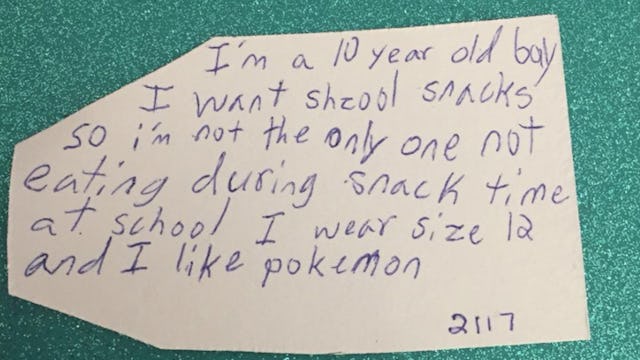 I'm a 10 year old boy
I want shzool snacks
so i'm not the only one not
eating during snack time
at school I wear size 12
and I like pokemon
2117